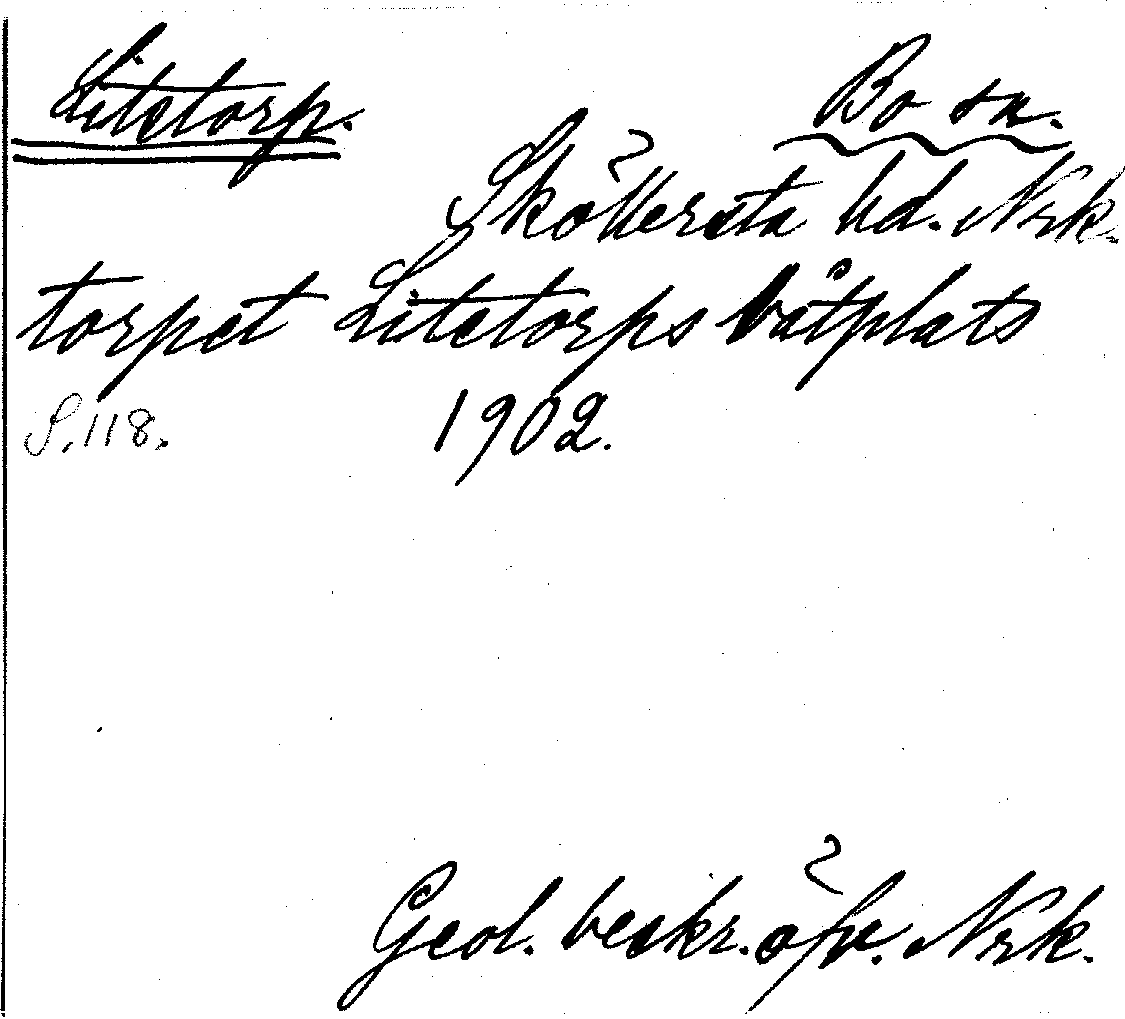 Litetorp. Bo sn.
Sköllersta hd. Nrk.
torpet Litetorps båtplats
S. 118. 1902.
Geol. beskr. öfv. Nrk.